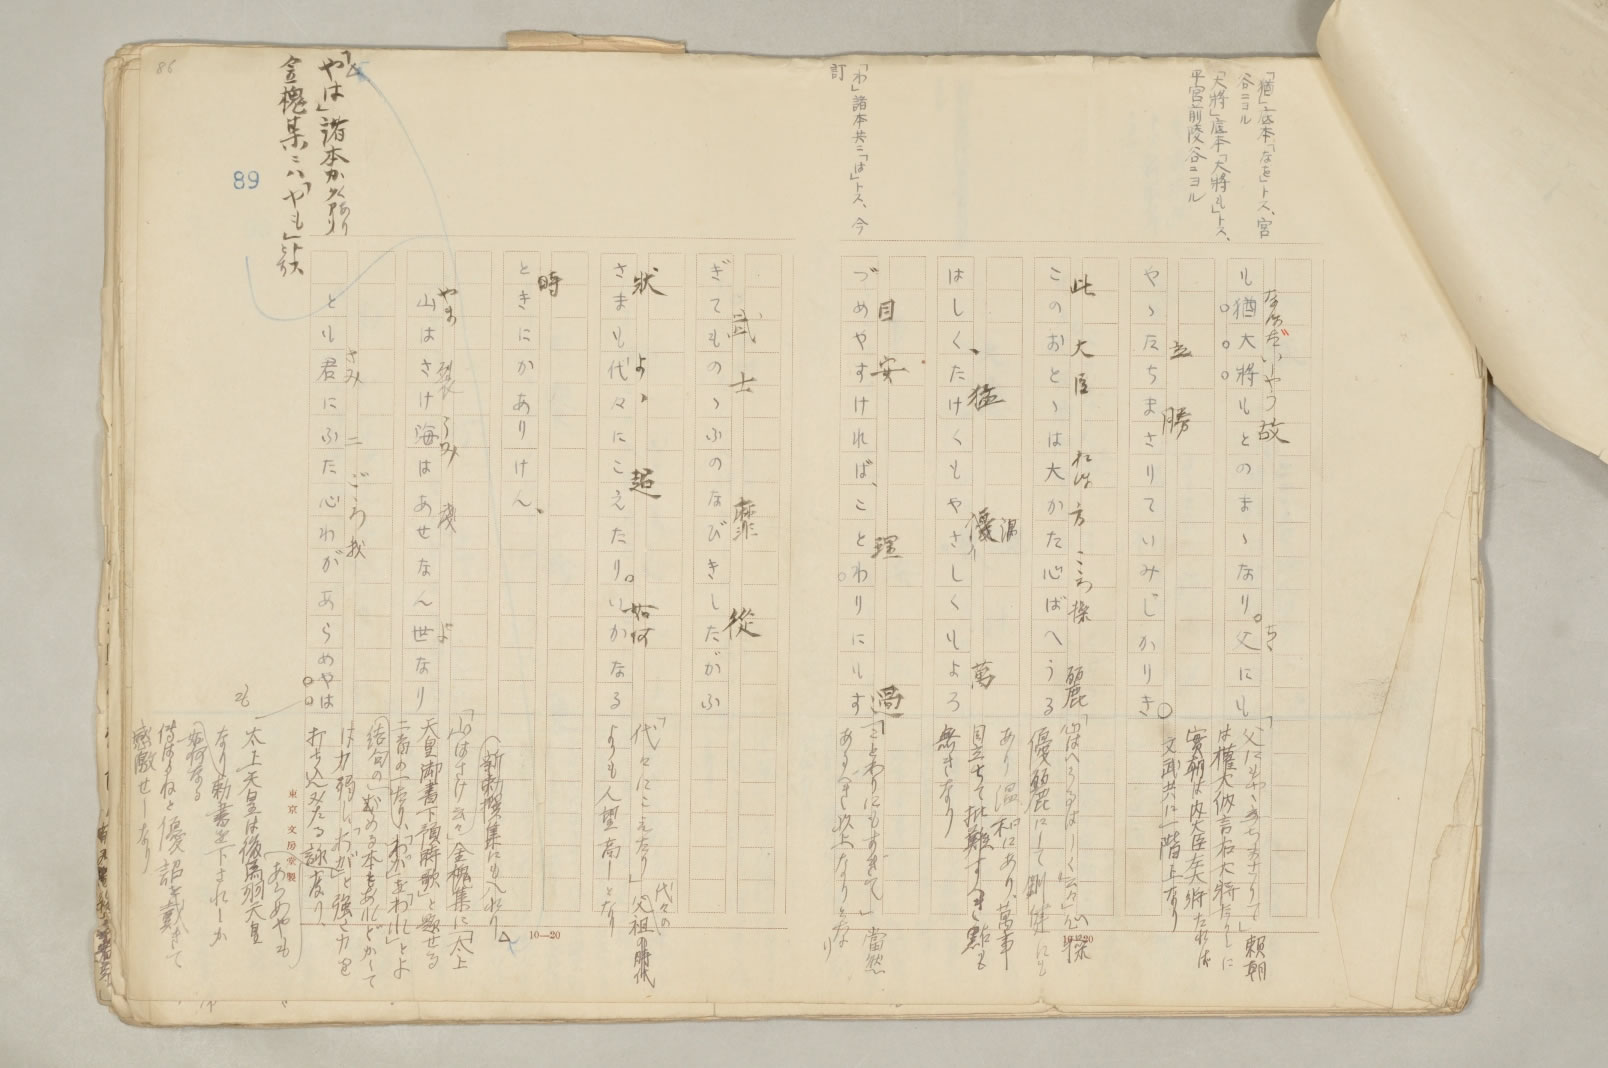 「猶」底本「なを」トス、宮
谷ニヨル
「大將」底本「大將も」トス、
平宮前陵谷ニヨル
「わ」諸本共ニ「は」トス、今
訂
も猶大將もとのまゝなり。父にも
故
やゝたちまさりていみじかりき
立 勝
このおとゞは大かた心ばへうる
此 大臣 方 こころ 操 麗
はしく、たけくもやさしくもよろ
猛 優 温 萬
づめやすければ、ことわりにもす
目 安 理 過
ぎてものゝふのなびきしたがふ
武 士 靡 從
さまも代々にこえたり。いかなる
狀 よゝ 超 如何
ときにかありけん、
時
山はさけ海はあせなん世なり
やま 裂 うみ 淺 よ
とも君にふた心わがあらめやは
きみ 二 ごころ 我
「やは」諸本かくあり
金槐集ニハ「やも」トス
89
86
「父にもやゝたちまさりて」頼朝
は權大納言右大將たりしに
實朝は内大臣左大將たれば
文武共に一階上なり
「心ばへうるはしく云々」心操
優麗にして剛健にも
あり温和にあり、萬事
目立ちて批難すべき點も
無きなり
「ことわりにもすぎて」當然
あるべき以上なりとなり
「代々にこえたり」父祖の時代
代々の
よりも人望高しとなり
新勅撰集にも入れり
「山はさけ云々」金槐集に「太上
天皇御書下預時歌」と題せる
二首の一たり、「わが」を「われ」とよ
める本もあれどかくて
結句の
は力弱し、「わが」と強き力を
打ち込みたる詠なり、
「あらめやも
太上天皇は後鳥羽天皇
なり勅書を下されしか
如何なる
侍はねと優詔を戴きて
感激せしなり
10—20
10—20
東京 文房堂製